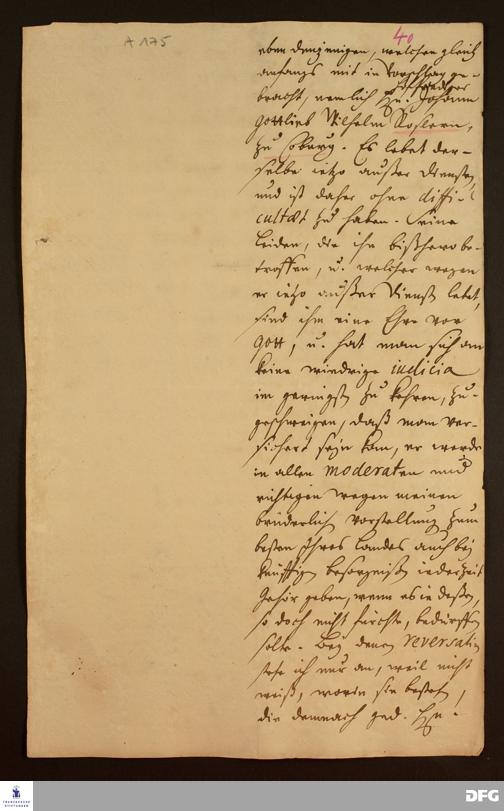 A 175
40
eben denjenigen, welchen gleich
anfangs mit in Vorschlag ge-
bracht, nemlich Hn.
Johann
Gottlieb Wilhelm Roslern,
zu Coburg. Es lebet der-
selbe ietzo außer Diensten
und ist daher ohne diffi-
cultaet zu haben. Seine
Leiden, die ihn bißhero be-
troffen, u. welcher wegen
er ietzo außer Dienst lebet,
sind ihm eine Ehre vor
Gott, u. hat man sich an
keine wiedrige iudicia
im geringsten zu kehren, zu-
geschweigen, daß man ver-
sichert seyn kan, er werde
in allen moderaten und
richtigen wegen meinen
brüderlich Vorstellung zum
besten Ihres Landes auch bey
künfftigen iederzeit
Gehör geben, wenn es in deßen,
so doch nicht fürchte, bedürffen
solte. Bey denen reversalien
stehe ich nur an, weil nicht
weiß, worin sie bestehen,
die demnach
FRANCKESCHE STIFTUNGEN
DFG